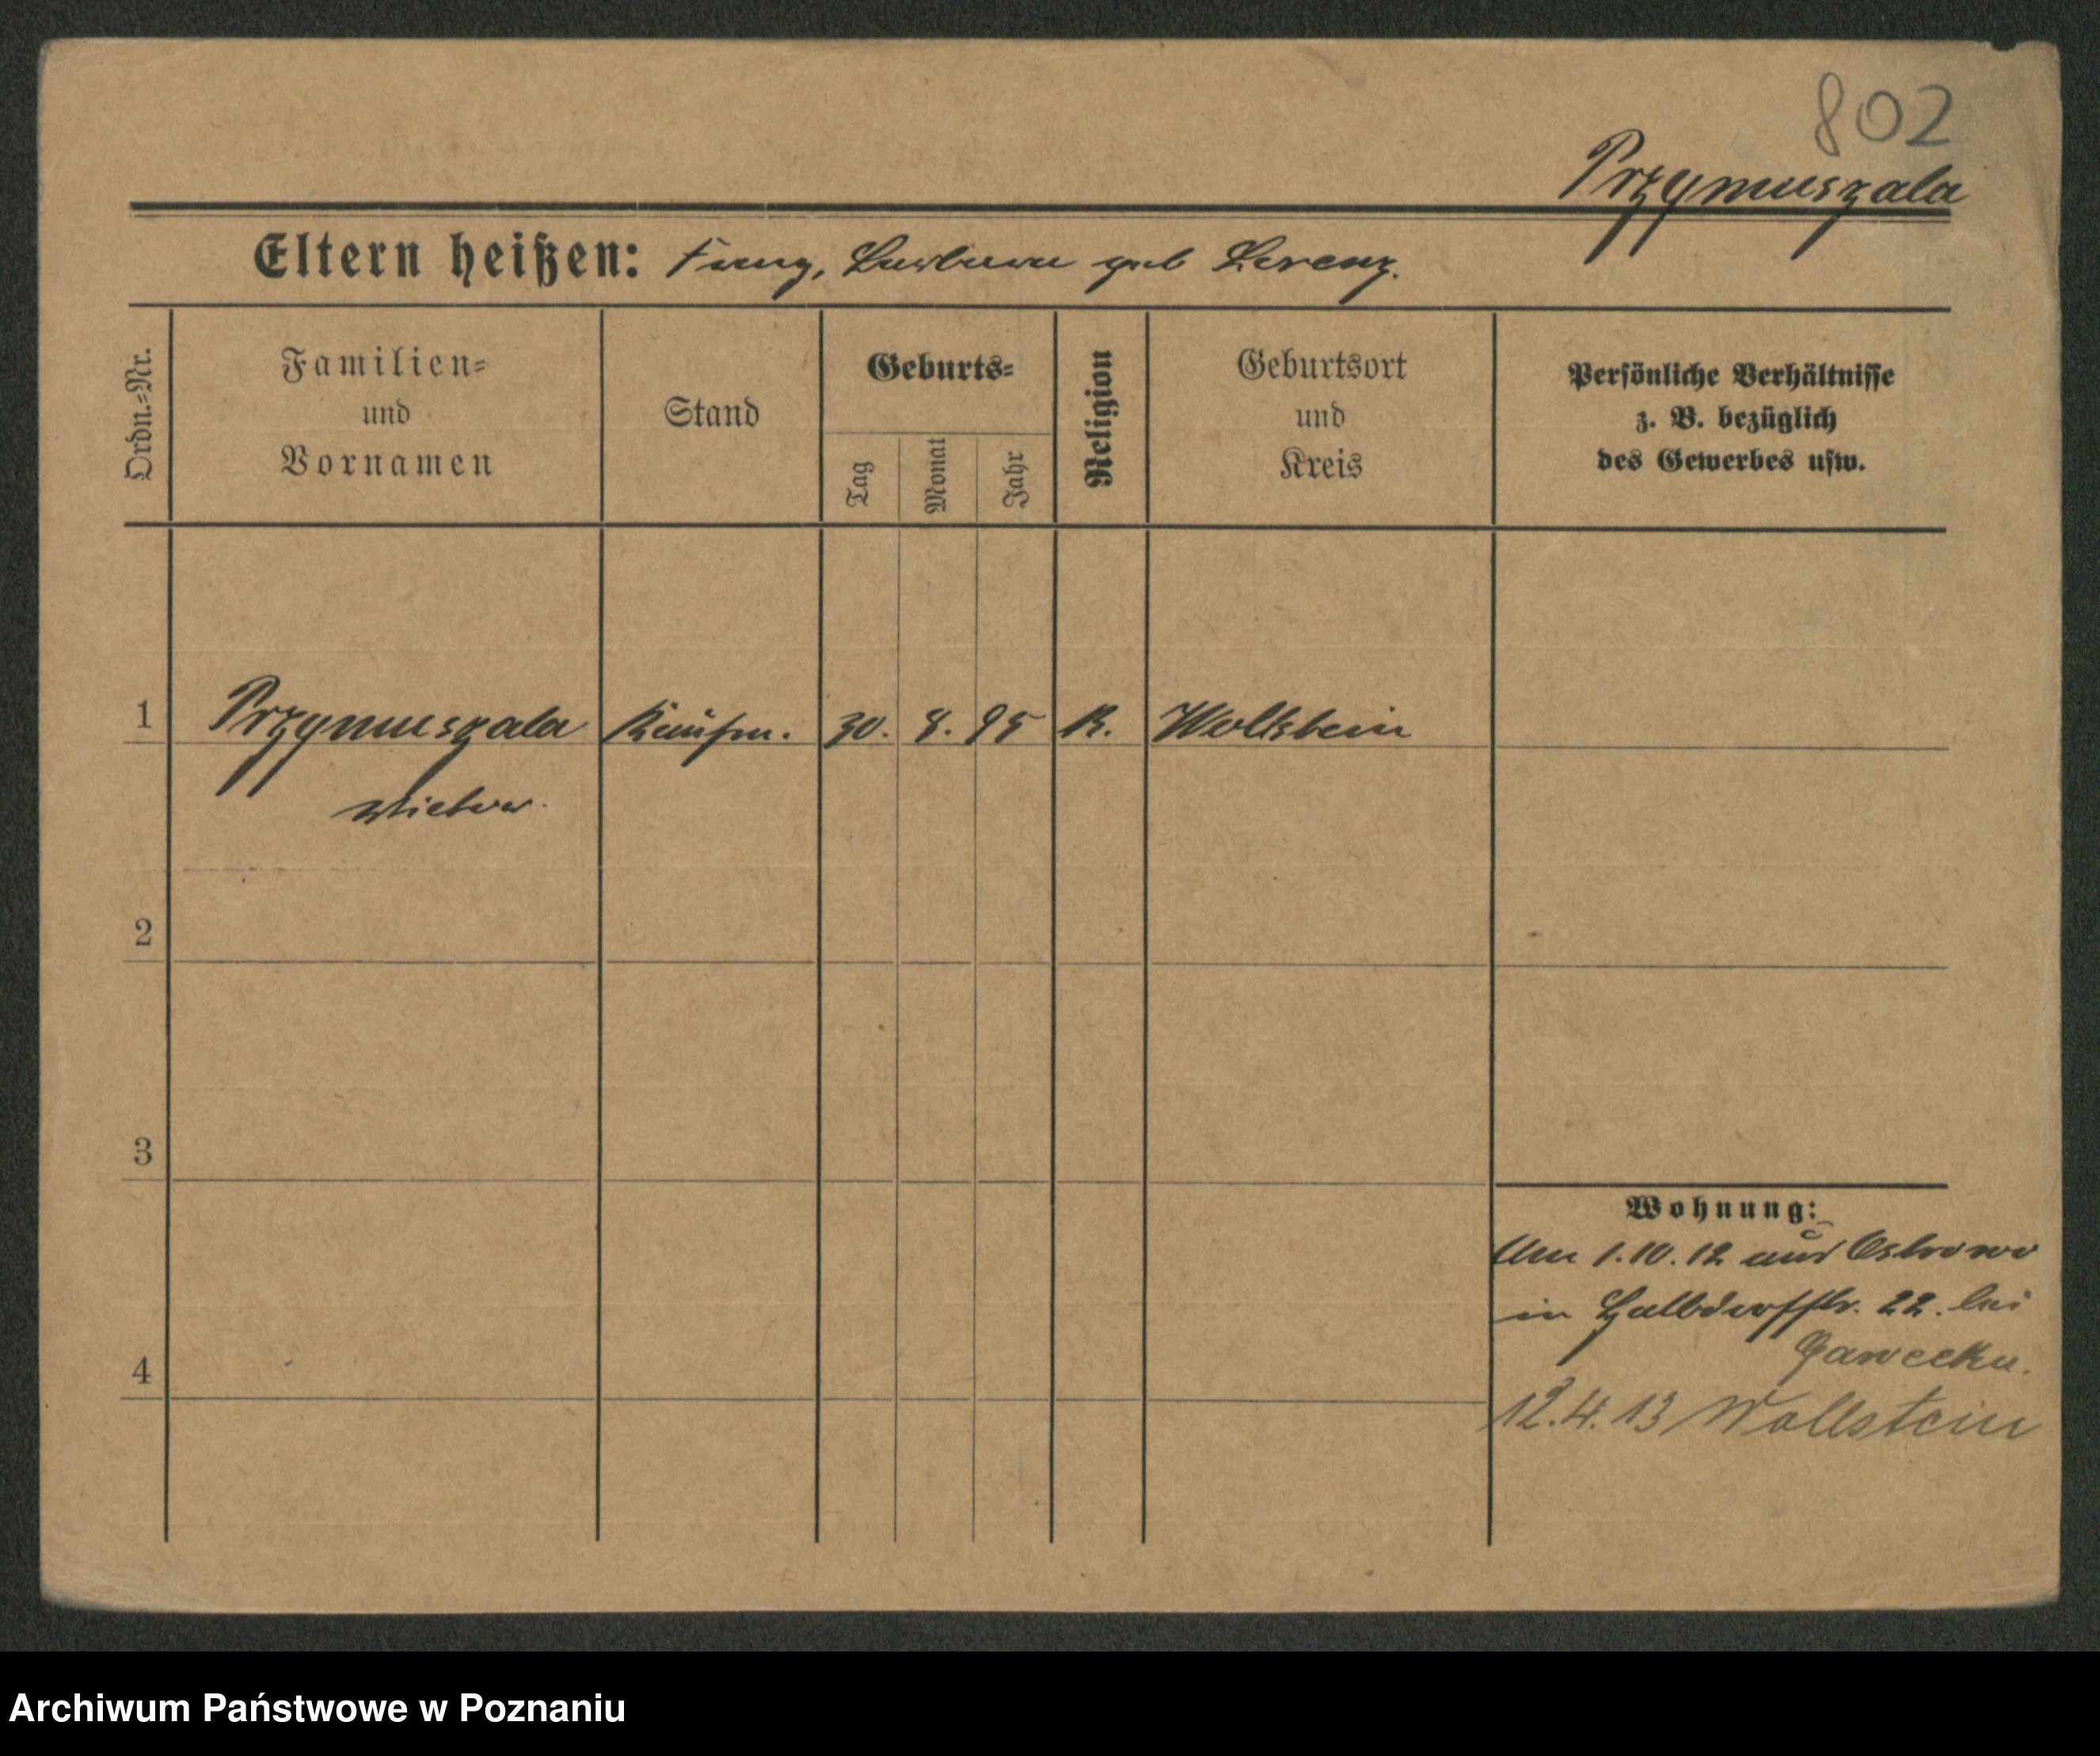 802
Przymuszala
Eltern heißen: Franz, Barbara geb Lorenz.
Ordn.-Nr.
Familien-
und
Vornamen
Stand
Geburts-
Tag
Monat
Jahr
Religion
Geburtsort
und
Kreis
Persönliche Verhältnisse
z. B. bezüglich
des Gewerbes usw.
1 Przymuszala Kaufm. 30. 8. 95 K. Wollstein
2
3
4
Wohnung:
Am 1.10.12 aus Ostrowo
in Halbdorfstr. 22. bei
12.4.13 Wollstein
Archiwum Państwowe w Poznaniu